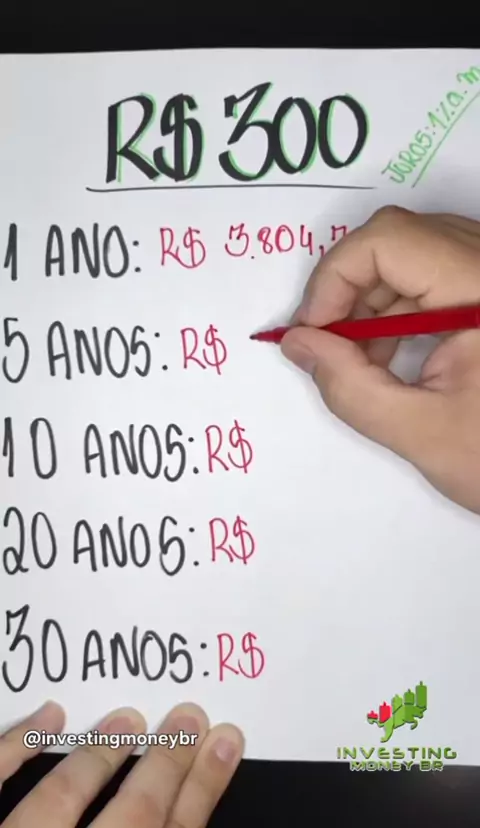 R$ 300
JUROS: 1% a.m
1 ANO: R$ 3.804,7
5 ANOS: R$
10 ANOS: R$
20 ANOS: R$
30 ANOS: R$
@investingmoneybr
INVESTING
MONEY BR